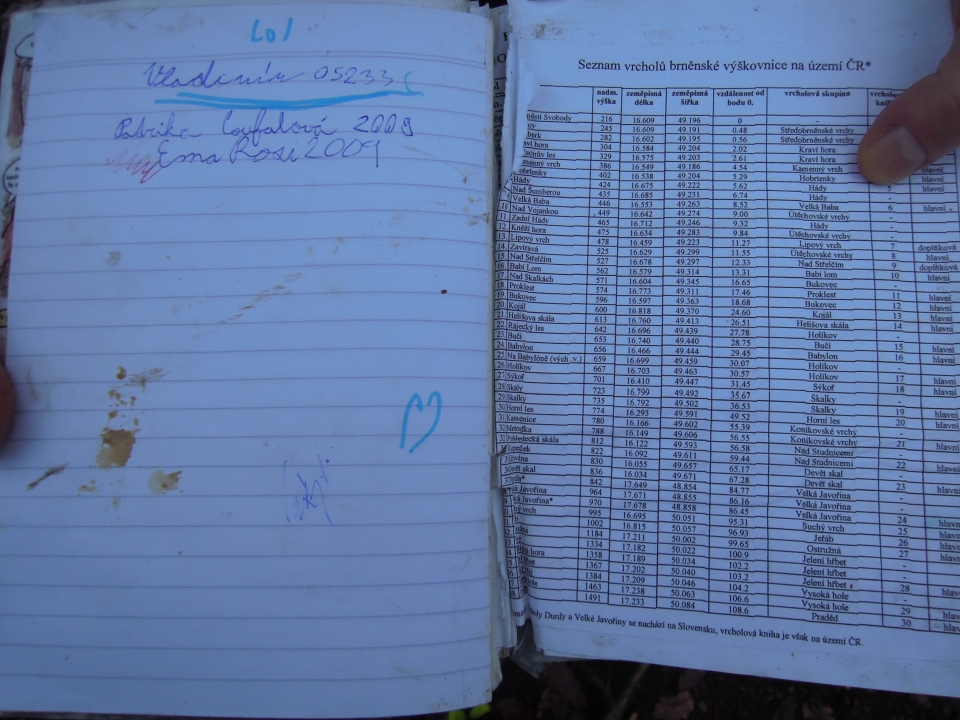 Lol
Vladimír 05233
Patrika Coufalová 2009
Ema Rosi 2009
Seznam vrcholů brněnské výškovnice na území ČR*
nadm. výška zeměpisná délka zeměpisná šířka vzdálenost od bodu 0, vrcholová skupina vrcholov
ěstí Svobody 216 16.609 49.196 0 -
245 16.609 49.191 0.48 Středobrněnské vrchy
282 16.602 49.195 0.56 Středobrněnské vrchy
ví hora 304 16.584 49.204 2.02 Kraví hora
329 16.575 49.203 2.61 Kraví hora
menný vrch 386 16.549 49.186 4.54 Kamenný vrch
obrtenky 402 16.538 49.204 5.29 Hobrtenky hlavní
Hády 424 16.675 49.222 5.62 Hády 5 hlavní
Nad Šumberou 435 16.685 49.231 6.74 Hády -
Velká Baba 446 16.553 49.263 8.52 Velká Baba 6 hlavní
10 Nad Vojankou 449 16.642 49.274 9.00 Útěchovské vrchy -
11 Zadní Hády 465 16.712 49.246 9.32 Hády -
12 Kněží hora 475 16.634 49.283 9.84 Útěchovské vrchy -
13 Lipový vrch 478 16.459 49.223 11.27 Lipový vrch 7 doplňková
14 Zavíravá 525 16.629 49.299 11.55 Útěchovské vrchy 8 hlavní
15 Nad Střelčím 527 16.678 49.297 12.33 Nad Střelčím 9 doplňková
16 Babí Lom 562 16.579 49.314 13.31 Babí lom 10 hlavní
17 Nad Skalkách 571 16.604 49.345 16.65 Bukovec -
18 Proklest 574 16.773 49.311 17.46 Proklest 11 hlavní
19 Bukovec 596 16.597 49.363 18.68 Bukovec 12 hlavní
20 Kojál 600 16.818 49.370 24.60 Kojál 13 hlavní
21 Helišova skála 613 16.760 49.413 26.51 Helišova skála 14 hlavní
22 Rájecký les 642 16.696 49.439 27.78 Holíkov -
23 Bučí 653 16.740 49.440 28.75 Bučí 15 hlavní
24 Babylon 656 16.466 49.444 29.45 Babylon 16 hlavní
25 Na Babylóně (vých .v.) 659 16.699 49.459 30.07 Holíkov -
26 Holíkov 667 16.703 49.463 30.57 Holíkov 17 hlavní
27 Sýkoř 701 16.410 49.447 31.45 Sýkoř 18 hlavní
28 Skály 723 16.799 49.492 35.67 Skalky -
29 Skalky 735 16.792 49.502 36.53 Skalky 19 hlavní
30 Horní les 774 16.293 49.591 49.52 Horní les 20 hlavní
31 Kamenice 780 16.166 49.602 55.39 Koníkovské vrchy -
32 Metodka 788 16.149 49.606 56.55 Koníkovské vrchy 21 hlavní
Pohledecká skála 812 16.122 49.593 56.58 Nad Studnicemi -
Kopeček 822 16.092 49.611 59.44 Nad Studnicemi 22 hlavní
830 16.055 49.657 65.17 Devět skal -
Devět skal 836 16.034 49.671 67.28 Devět skal 23 hlavní
Durda* 842 17.649 48.854 84.77 Velká Javořina -
á Javořina 964 17.671 48.855 86.16 Velká Javořina -
á Javořina* 970 17.678 48.858 86.45 Velká Javořina 24 hlavn
ý vrch 995 16.695 50.051 95.31 Suchý vrch 25 hlavn
1002 16.815 50.057 96.93 Jeřáb 26 hlavn
1184 17.211 50.002 99.65 Ostružná 27 hlavn
1334 17.182 50.022 100.9 Jelení hřbet -
hora 1358 17.189 50.034 102.2 Jelení hřbet -
1367 17.202 50.040 103.2 Jelení hřbet 28 hlavn
1384 17.209 50.046 104.2 Vysoká hole -
hole 1463 17.238 50.063 106.6 Vysoká hole 29 hlav
1491 17.233 50.084 108.6 Praděd 30 hlav
oly Durdy a Velké Javořiny se nachází na Slovensku, vrcholová kniha je však na území ČR.